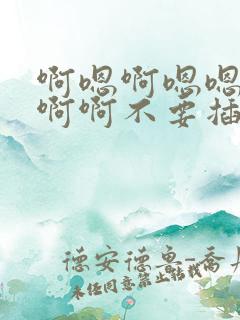 啊嗯啊嗯嗯
啊啊不要插
德安德鲁-乔
未经同意禁止转载